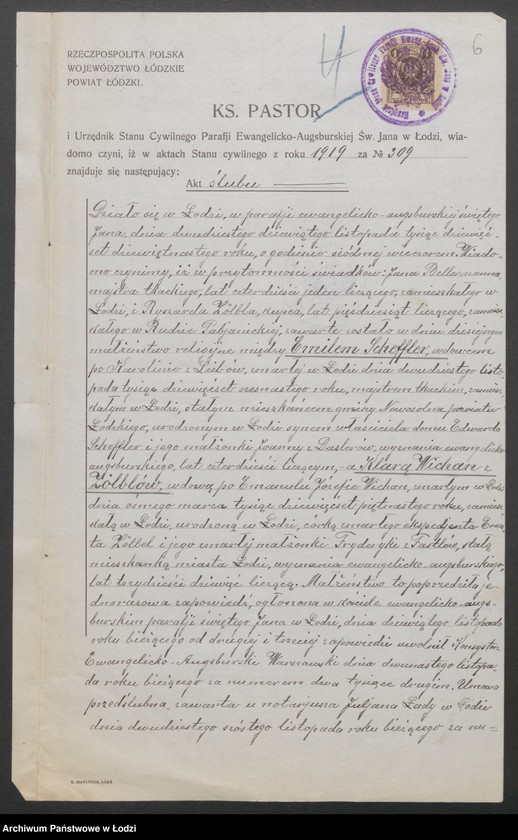 6
4
RZECZPOSPOLITA POLSKA
WOJEWÓDZTWO ŁÓDZKIE
POWIAT ŁÓDZKI.
KS. PASTOR
i Urzędnik Stanu Cywilnego Parafji Ewangelicko-Augsburskiej Św. Jana w Łodzi, wia-
domo czyni, iż w aktach Stanu cywilnego z roku 1919 za № 309
znajduje się następujący:
Akt ślubu
Działo się w Łodzi, w parafji ewangelicko-augsburskiej świętego
Jana, dnia dwudziestego dziewiątego listopada tysiąc dziewięć-
set dziewiętnastego roku, o godzinie siódmej wieczorem. Wiado-
mo czynimy, iż w przytomności świadków: Jana Bellermanna,
majstra tkackiego, lat czterdzieści jeden liczącego, zamieszkałego w
Łodzi, i Ryszarda Zölbla, kupca, lat pięćdziesiąt liczącego, zamiesz-
kałego w Rudzie Pabjanickiej, zawarte zostało w dniu dzisiejszym
małżeństwo religijne między Emilem Scheffler, wdowcem
po Karolinie z Leibów, zmarłej w Łodzi dnia dwudziestego listo-
pada tysiąc dziewięćset szesnastego roku, majstrem tkackim, zamiesz-
kałym w Łodzi, stałym mieszkańcem gminy Nowosolna, powiatu
Łódzkiego, urodzonym w Łodzi synem właściciela domu Edwarda
Scheffler i jego małżonki Joanny z Daslerów, wyznania ewangelicko-
augsburskiego, lat czterdzieści liczącym, – a Klarą Wichan z
Zölblów, wdową po Emanuelu Józefie Wichan, zmarłym w Łodzi
dnia ósmego marca tysiąc dziewięćset piętnastego roku, zamiesz-
kałą w Łodzi, urodzoną w Łodzi, córką zmarłego ekspedjenta
Zölbel i jego zmarłej małżonki Fryderyki z Fastlów, stałą
mieszkanką miasta Łodzi, wyznania ewangelicko-augsburskiego,
lat trzydzieści dziewięć liczącą. Małżeństwo to poprzedziła je-
dnorazowa zapowiedź, ogłoszona w kościele ewangelicko-augs-
burskim parafji świętego Jana w Łodzi, dnia dziewiątego listopada
roku bieżącego od drugiej i trzeciej zapowiedzi uwolnił Konsystorz
Ewangelicko-Augsburski Warszawski dnia dwunastego listopa-
da roku bieżącego za numerem dwa tysiące drugim. Umowa
przedślubna, zawarta u notarjusza Juljana Łady w Łodzi
dnia dwudziestego szóstego listopada roku bieżącego za nu=
Archiwum Państwowe w Łodzi